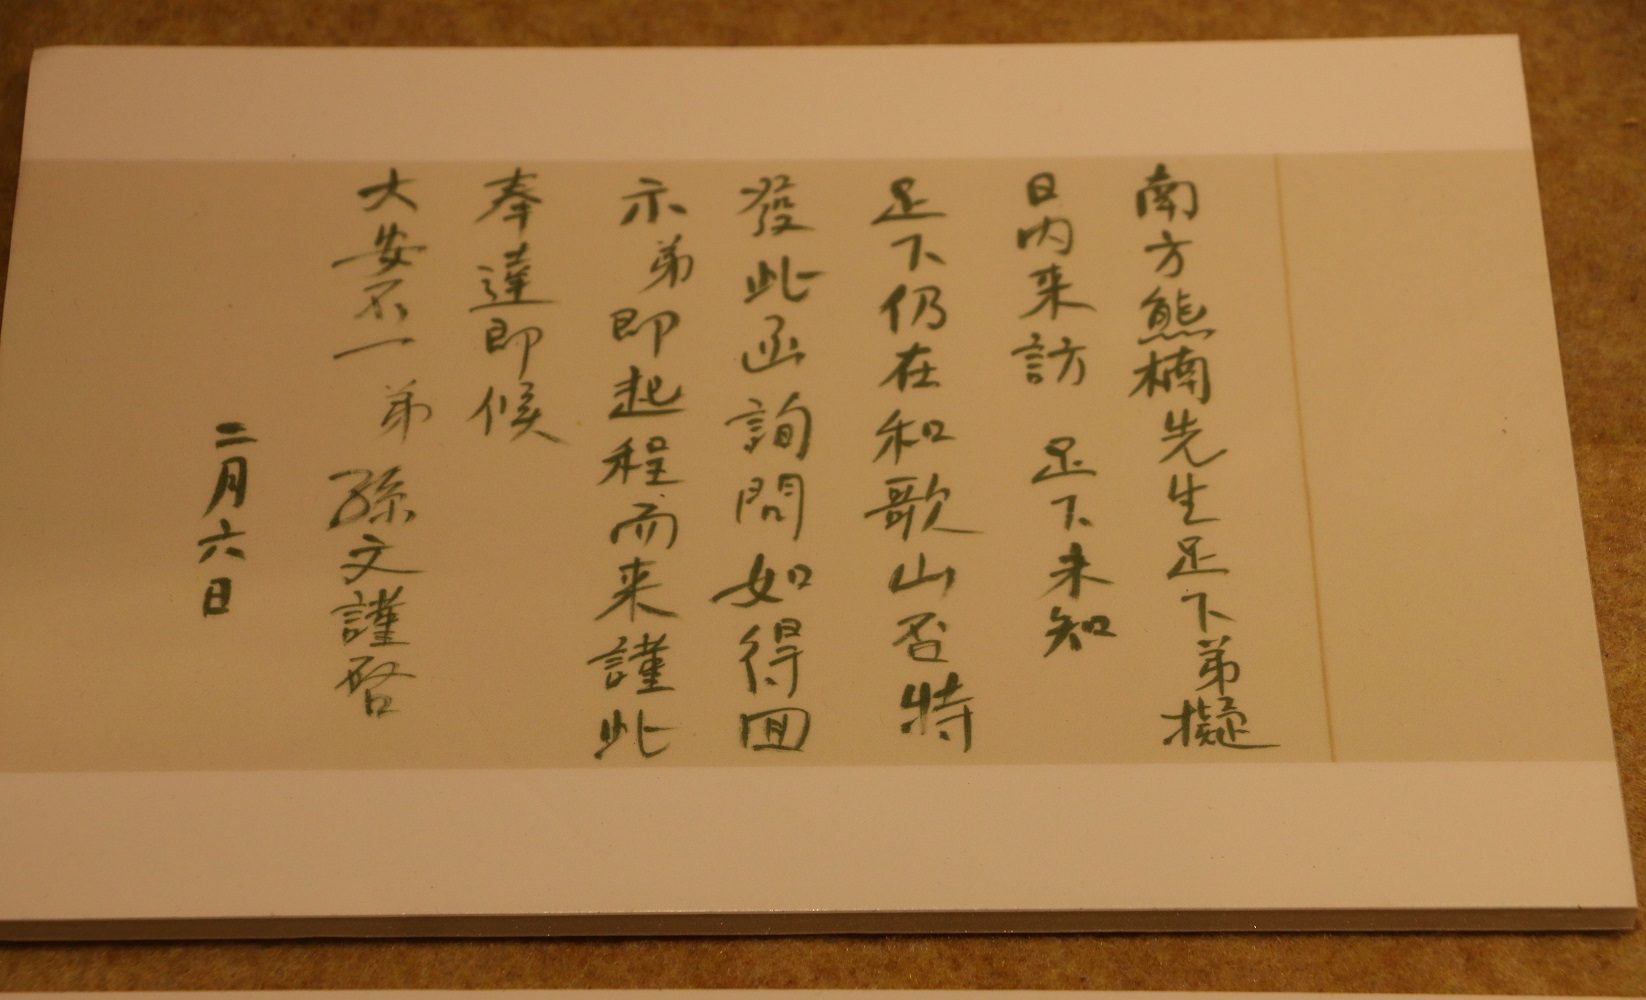 南方熊楠先生足下弟擬
日内来訪 足下未知
足下仍在和歌山否特
發此函詢問如得囬
示弟即起程而来謹此
奉達即候
大安不一 弟 孫文謹啓
二月六日